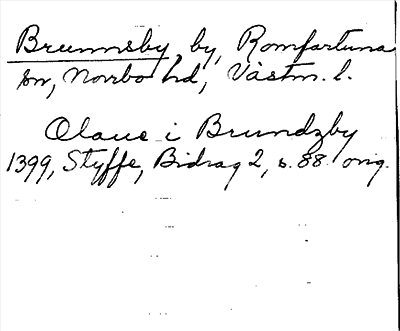 Brunnsby by, Romfartuna
sn, Norrbo hd, Västm. l.
Olaue i Brundzby
1399, Styffe, Bidrag 2, s. 88. orig.